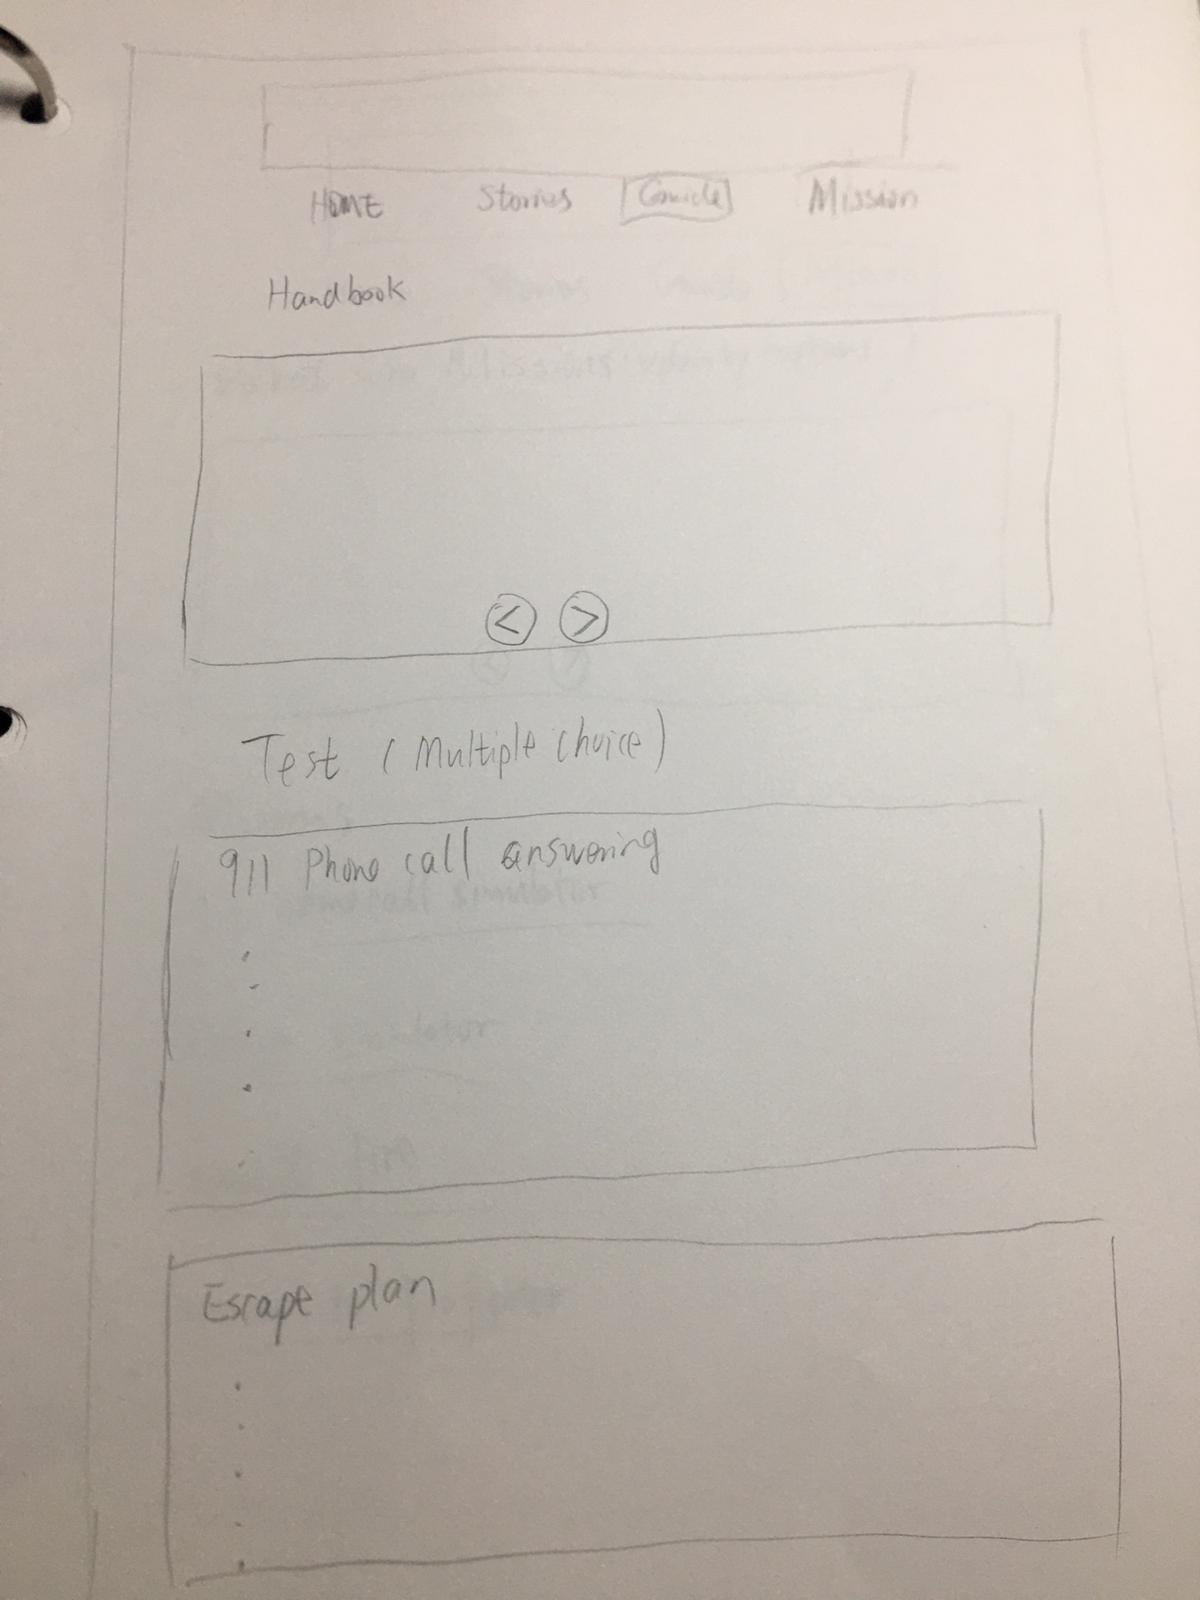 HOME Stories Mission
Handbook
< >
Test (Multiple choice)
911 Phone call answering
Escape plan